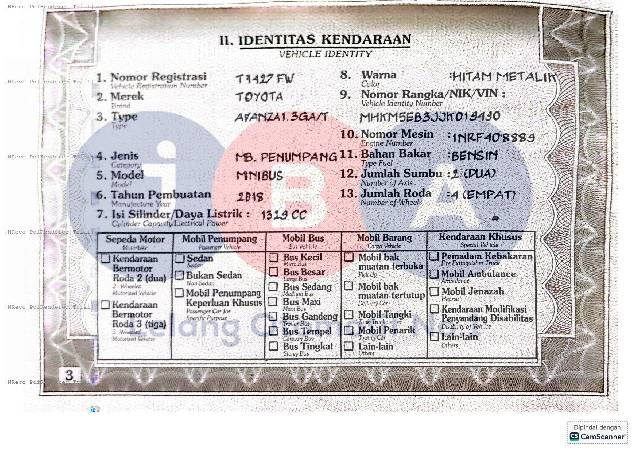 II. IDENTITAS KENDARAAN
VEHICLE IDENTITY
1. Nomor Registrasi T1427 FW
Vehicle Registration Number
2. Merek TOYOTA
Brand
3. Type AVANZA1.3GA/T
Type
4. Jenis MB. PENUMPANG
Category
5. Model MNIBUS
Model
6. Tahun Pembuatan 2018
Manufacture Year
7. Isi Silinder/Daya Listrik : 1329 CC
Cylinder Capacity/Electrical Power
8. Warna :HITAM METALIK
Color
9. Nomor Rangka/NIK/VIN :
Vehicle Identity Number
10. Nomor Mesin :1NRF408889
Engine Number
11. Bahan Bakar :BENSIN
Type Fuel
12. Jumlah Sumbu :2 (DUA)
Number of Axis
13. Jumlah Roda :4 (EMPAT)
Number of Wheel
Sepeda Motor
Motorbike
Kendaraan Bermotor Roda 2 (dua)
2 Wheeled
Motorized Vehicle
Kendaraan Bermotor Roda 3 (tiga)
3 Wheeled
Motorized Vehicle
Mobil Penumpang
Passenger Vehicle
Sedan
Sedan
Bukan Sedan
Non Sedan
Mobil Penumpang Keperluan Khusus
Passenger Car for
Specific Purpose
Mobil Bus
Bus Vehicle
Bus Kecil
Bus Besar
Bus Sedang
Bus Maxi
Bus Gandeng
Bus Tempel
Bus Tingkat
Mobil Barang
Cargo Vehicle
Mobil bak muatan terbuka
Mobil bak muatan tertutup
Mobil Tangki
Mobil Penarik
Lain-lain
Others
Kendaraan Khusus
Special Vehicle
Pemadam Kebakaran
Mobil Ambulance
Ambulance
Mobil Jenazah
Kendaraan Modifikasi Penyandang Disabilitas
Lain-lain
Others
3
iBA
Dipindai dengan
CamScanner